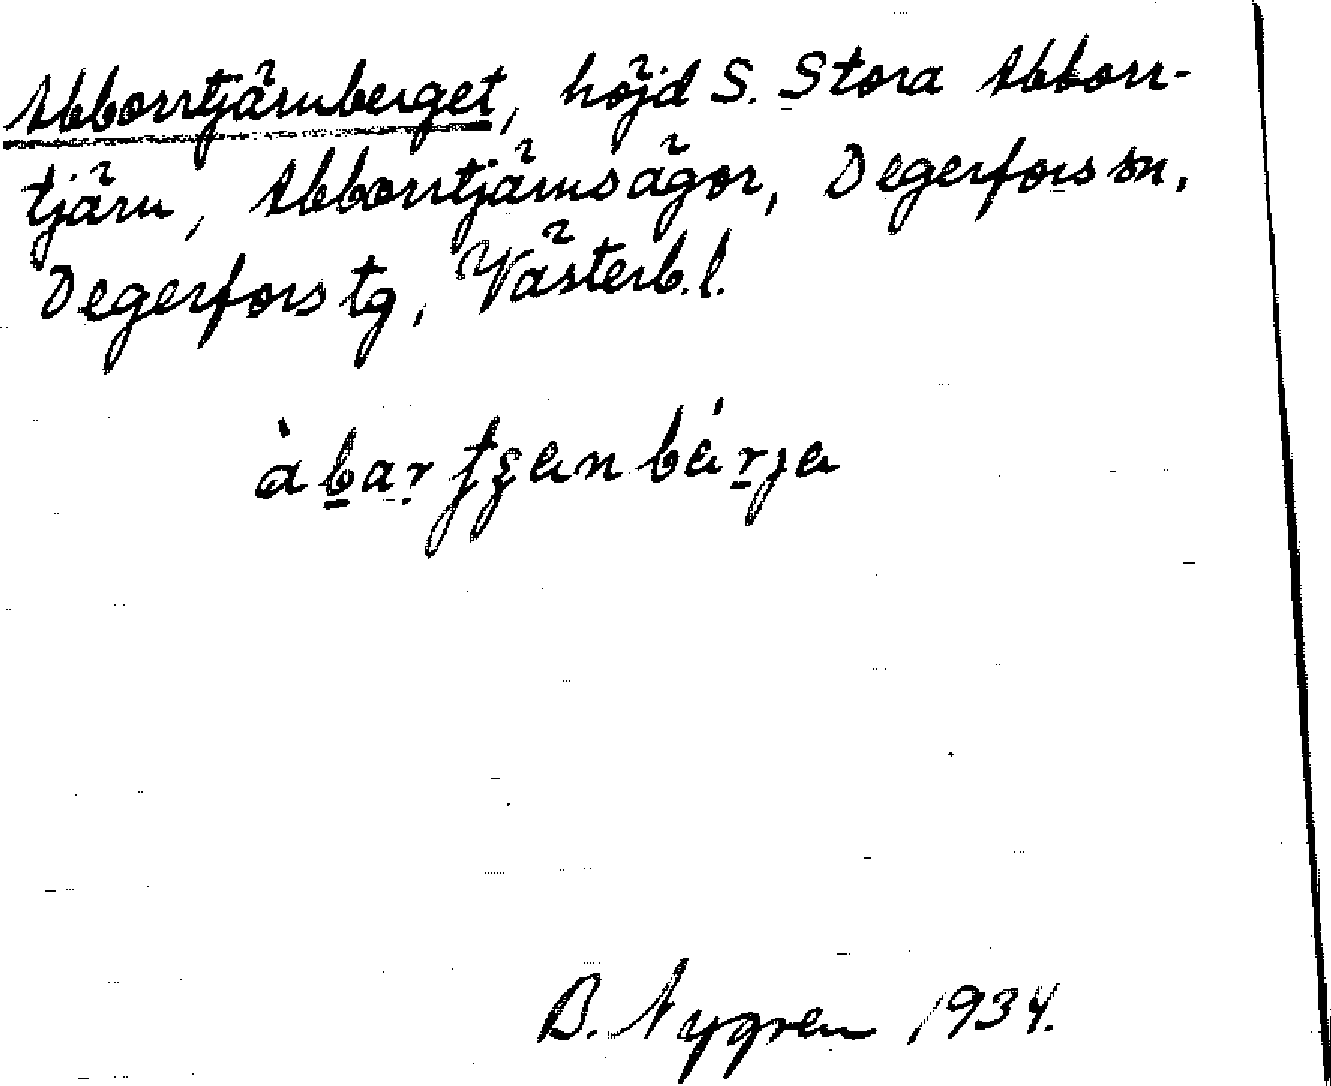 Abborrtjärnberget, höjd S. Stora Abborr-
tjärn, Abborrtjärnsägor, Degerfors sn,
Degerfors tg, Västerb. l.
B. Nygren 1934.